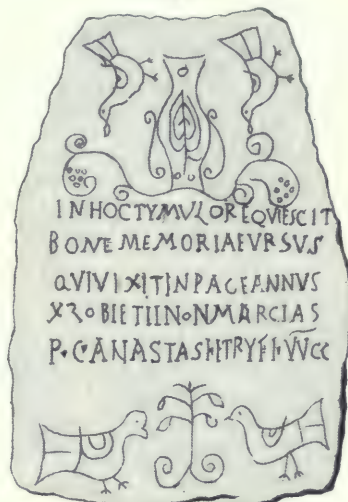 INHOCTYMVLOREQVIESCIT
BONEMEMORIAEVRSVS
QVIVIXITINPACEANNVS
OBIETIINONMARCIAS
P·C·ANASTASIETRYFI·VVCC